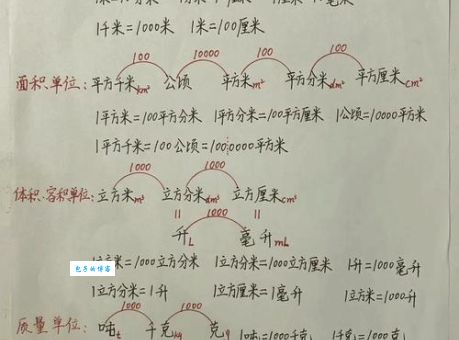 1千米=1000米 1米=100厘米
100 10000 100 100
面积单位:平方千米km² 公顷 平方米m² 平方分米dm² 平方厘米cm²
1平方米=100平方分米 1平方分米=100平方厘米 1公顷=10000平方米
1平方千米=100公顷=1000000平方米
1000 1000
体积.容积单位:立方米m³ 立方分米dm³ 立方厘米cm³
= 1000 =
升L 毫升mL
包子的博客
1立方米=1000立方分米 1立方分米=1000立方厘米 1升=1000毫升
1立方分米=1升 1立方厘米=1毫升 1立方米=1000升
1000 1000
质量单位:吨t 千克kg 克g 1吨=1000千克 1千克=1000克